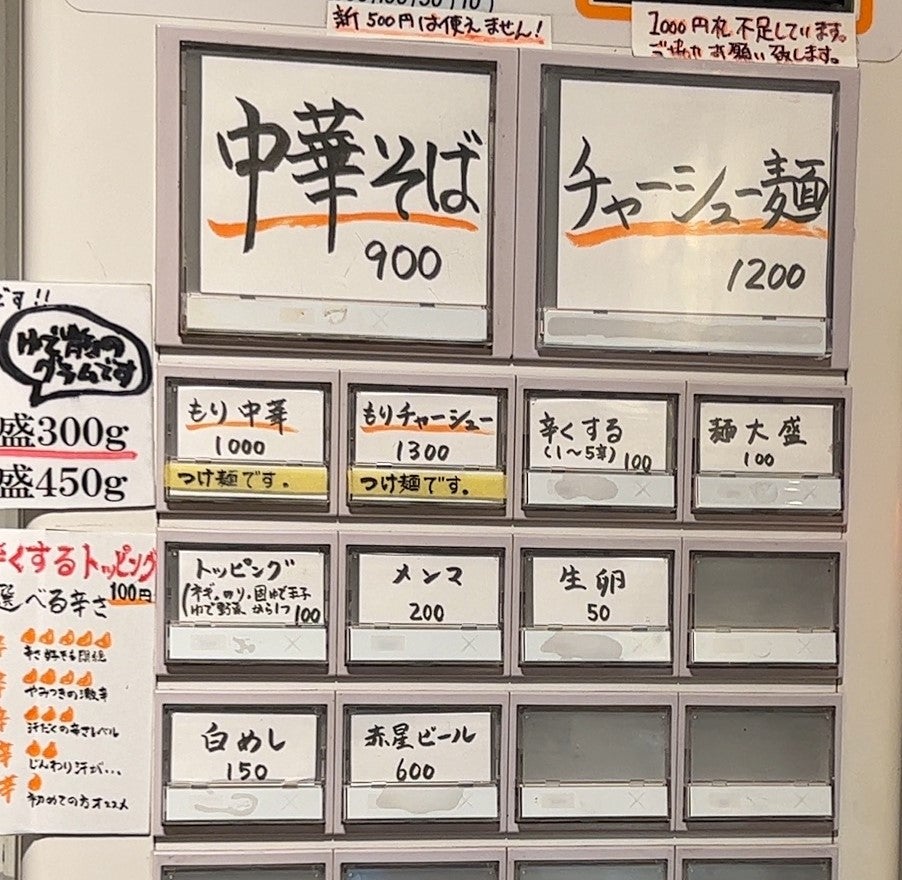 新500円は使えません!
1000円札不足しています。
ご協力お願い致します。
中華そば
900
チャーシュー麺
1200
です!!
ゆで前の
グラムです
盛300g
盛450g
もり中華
1000
つけ麺です。
もりチャーシュー
1300
つけ麺です。
辛くする
(1〜5辛) 100
麺大盛
100
トッピング
(ネギ、のり、固ゆで玉子
ゆで野菜 から1つ 100
メンマ
200
生卵
50
白めし
150
赤星ビール
600
辛くするトッピング
選べる辛さ 100円
やみつきの激辛
汗だくの辛さレベル
じんわり汗が…
初めての方オススメ